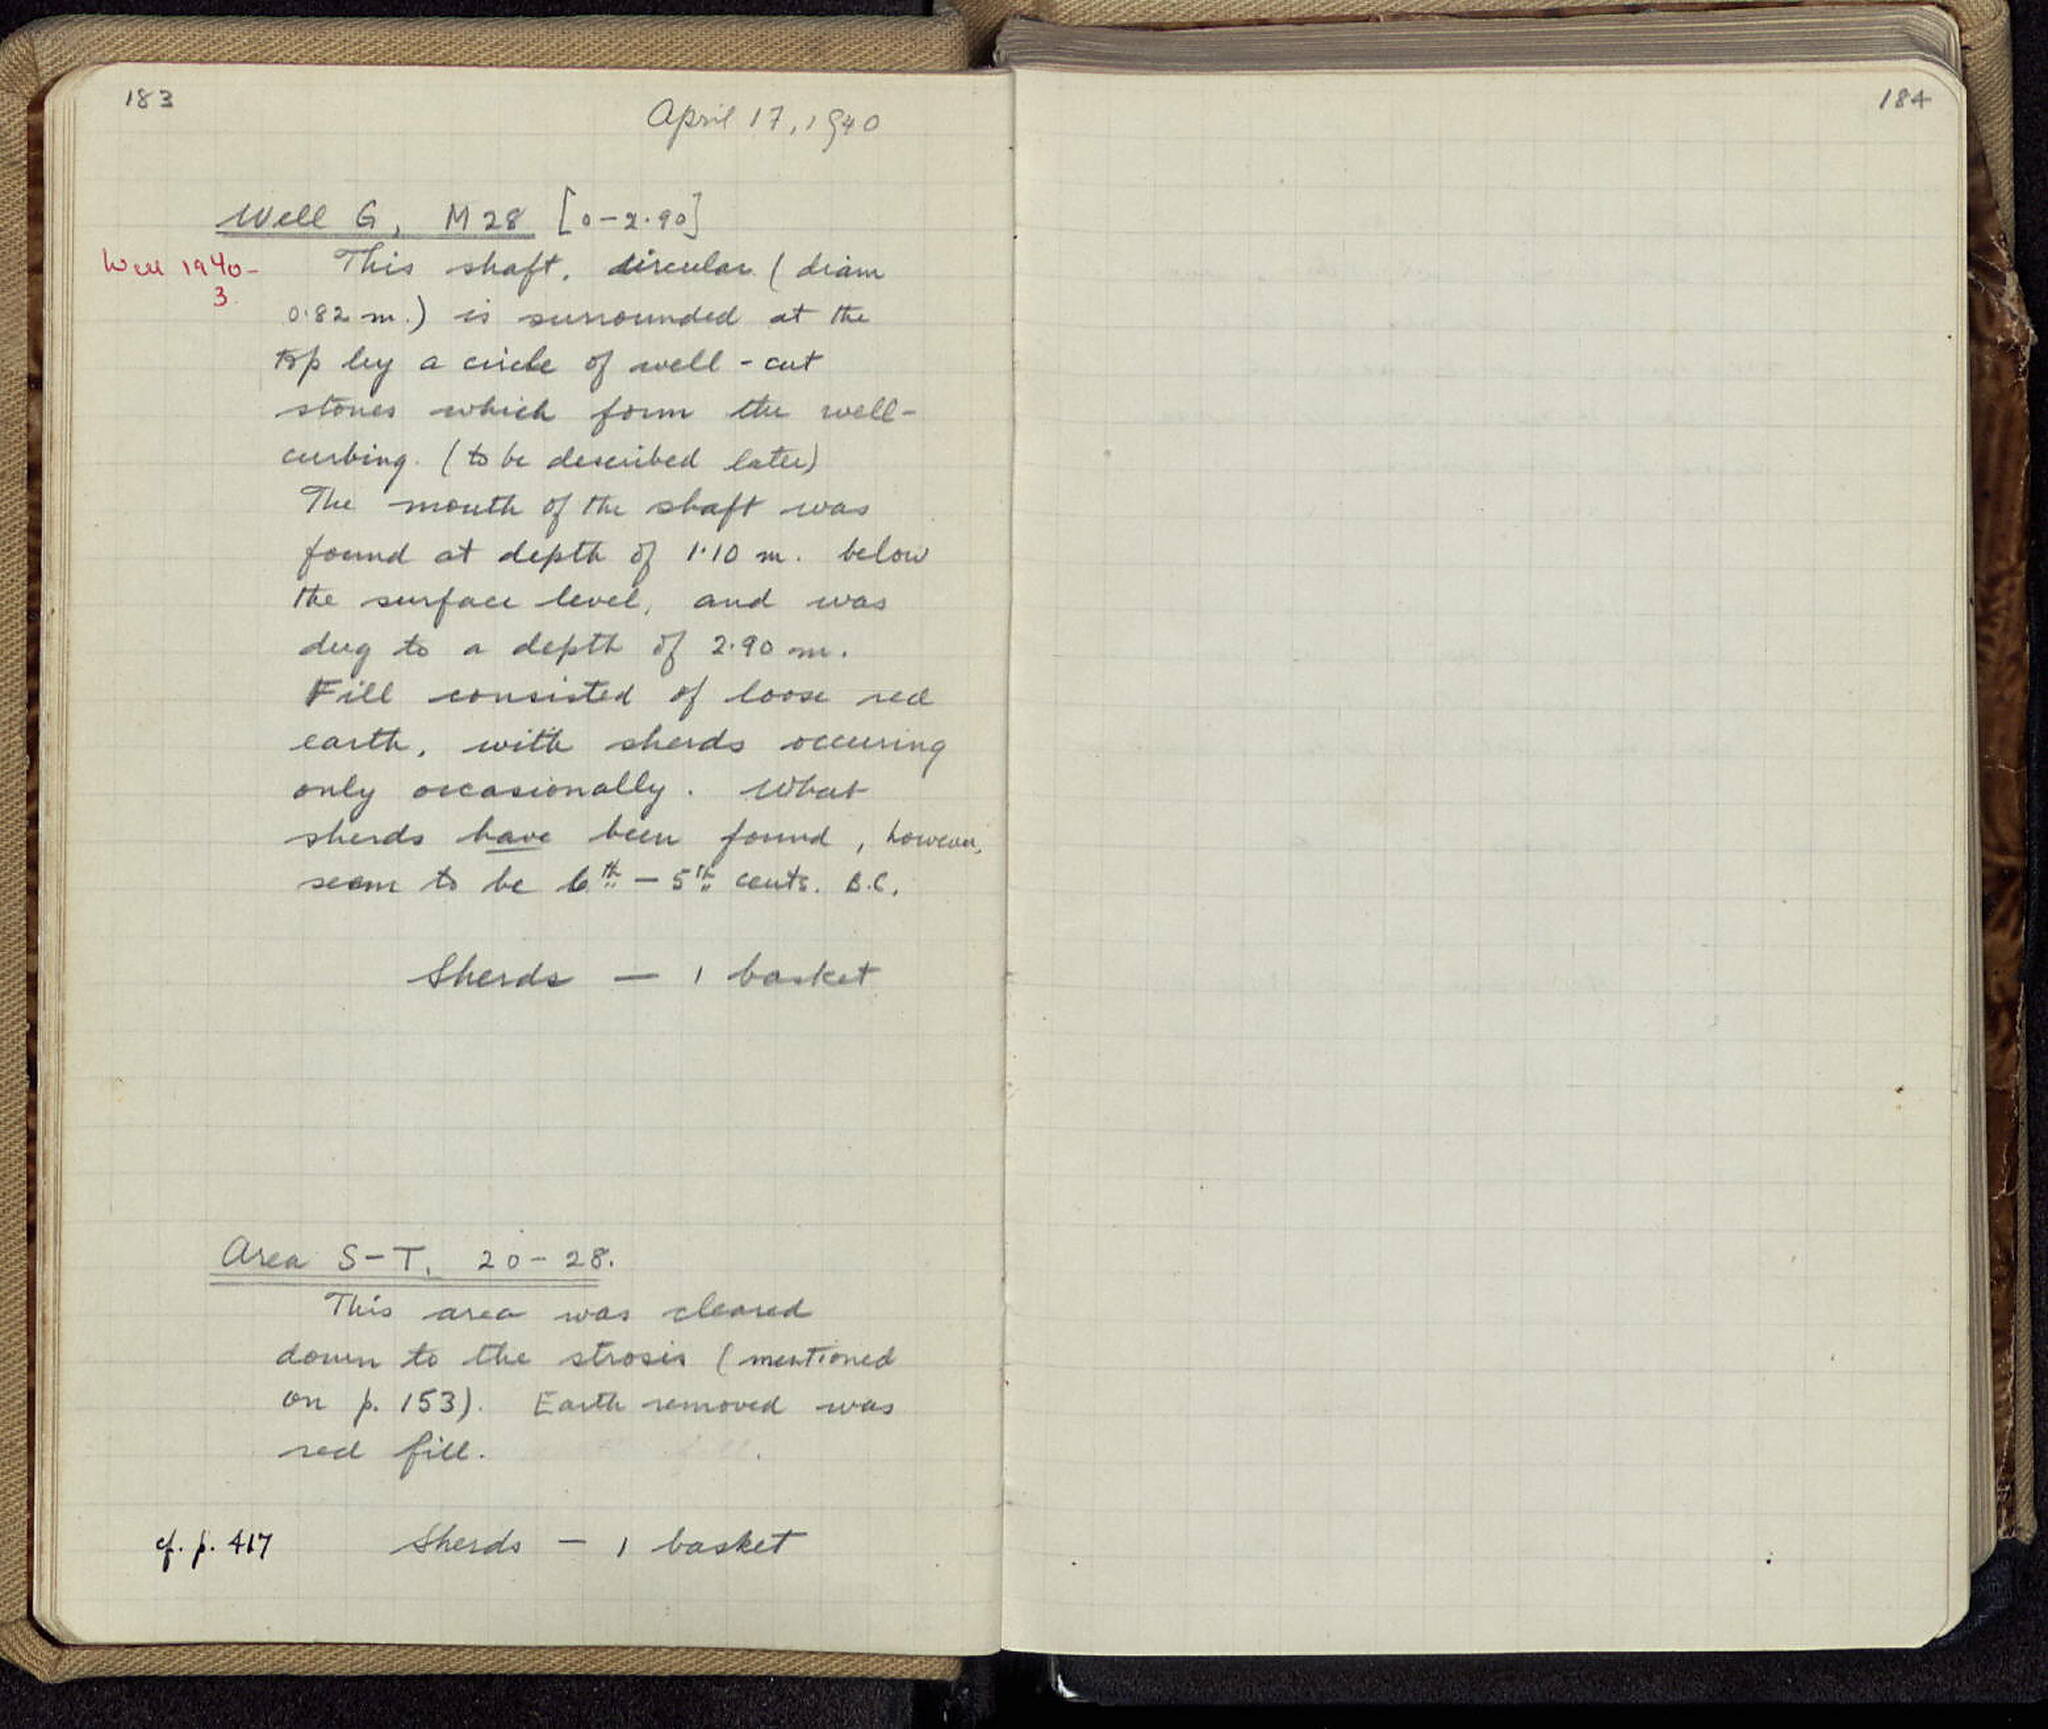 183
April 17, 1940
Well G, M 28 [0-2.90]
Well 1940-
3
This shaft, circular (diam
0.82 m.) is surrounded at the
top by a circle of well-cut
stones which form the well-
curbing. (to be described later)
The mouth of the shaft was
found at depth of 1.10 m. below
the surface level, and was
dug to a depth of 2.90 m.
Fill consisted of loose red
earth, with sherds occuring
only occasionally. What
sherds have been found, however,
seem to be 6th - 5th cents. B.C.
Sherds — 1 basket
Area S-T, 20-28.
This area was cleared
down to the strosis (mentioned
on p. 153). Earth removed was
red fill.
cf. p. 417
Sherds - 1 basket
184